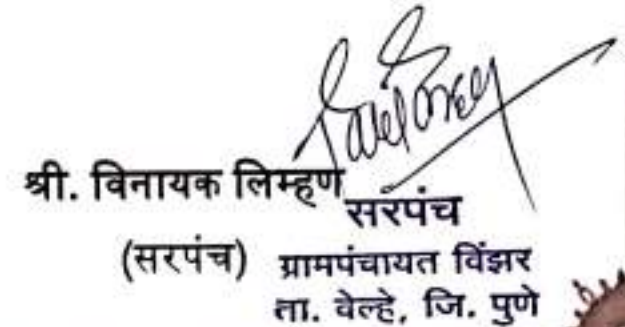 श्री. विनायक लिम्हण
सरपंच
(सरपंच) ग्रामपंचायत विंझर
ता. वेल्हे, जि. पुणे